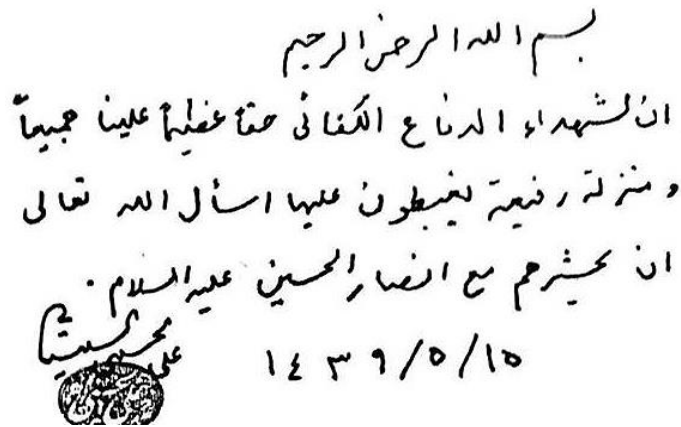 بسم الله الرحمن الرحيم
ان لشهداء الدفاع الكفائي حقاً عظيماً علينا جميعاً
ومنزلة رفيعة يغبطون عليها اسأل الله تعالى
ان يحشرهم مع انصار الحسين عليه السلام .
١٤٣٩/٥/١٥
علي الحسيني السيستاني